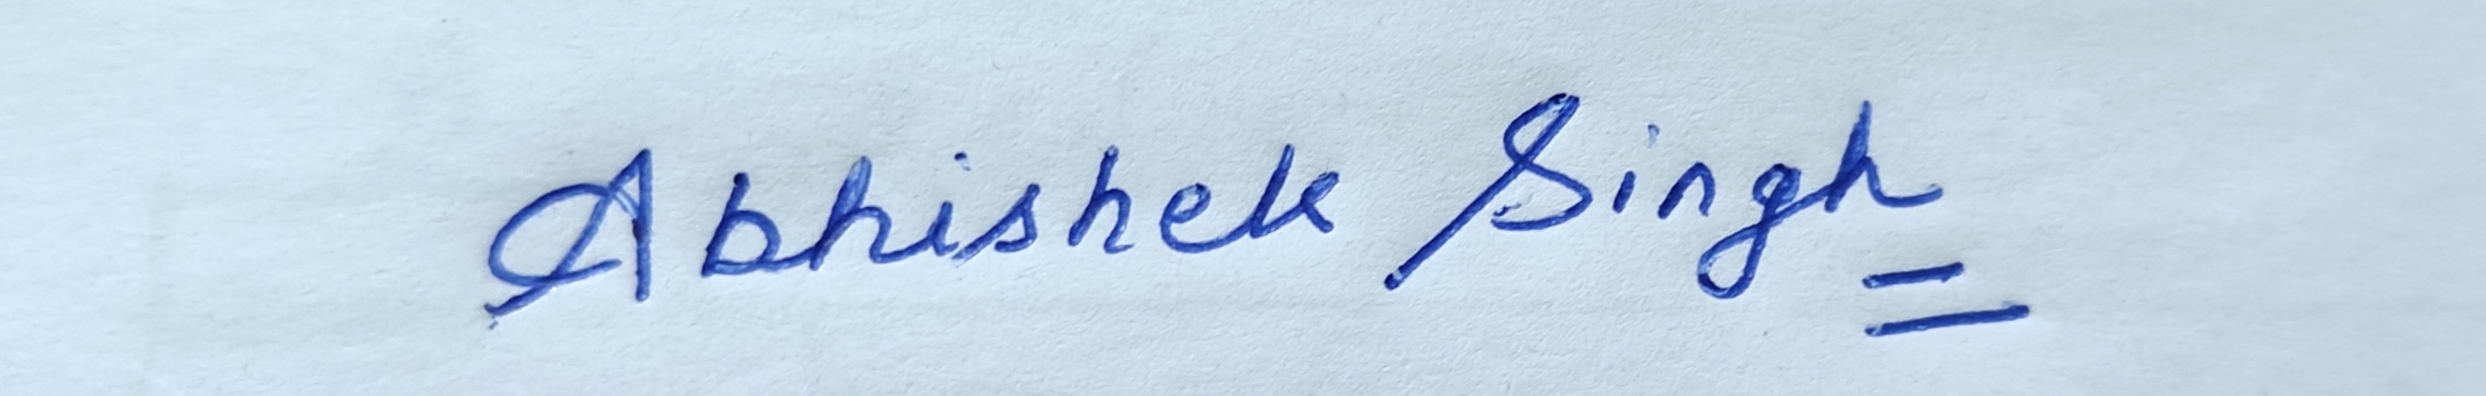 Abhishek Singh